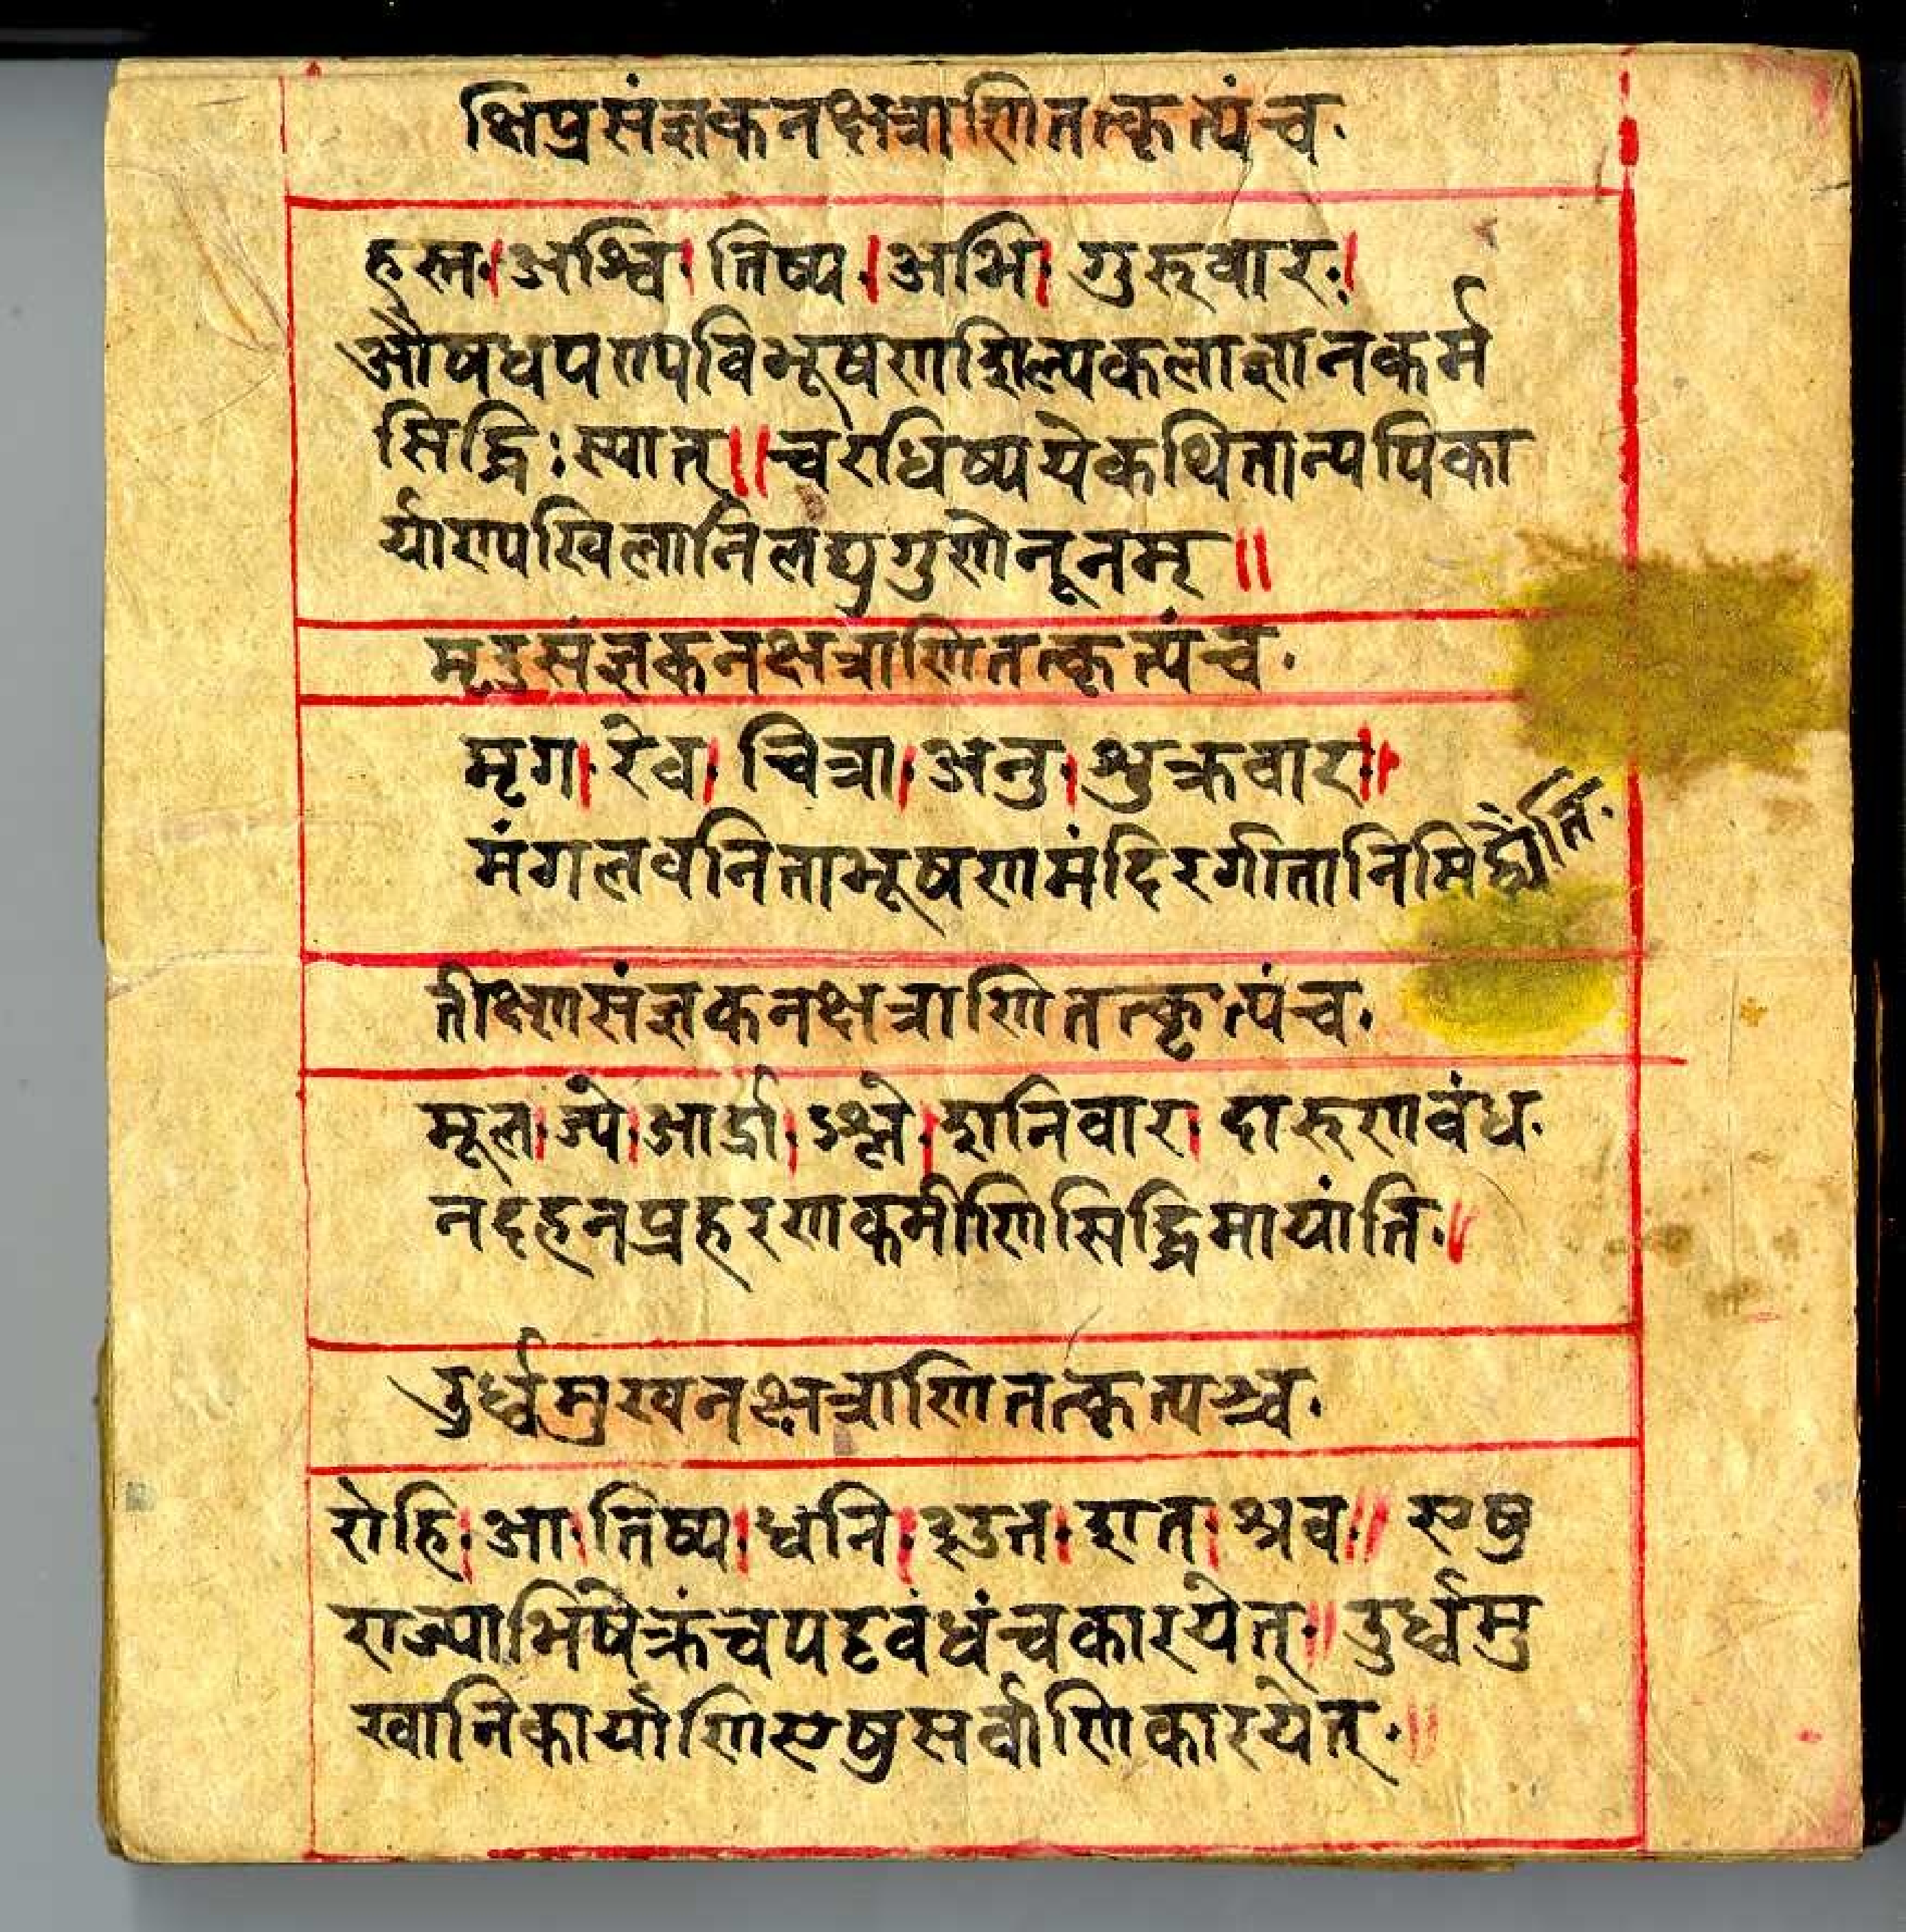 क्षिप्रसंज्ञकनक्षत्राणितत्कृत्यंच.
हस्त।अश्वि।तिष्य।अभि।गुरूवार.।
औषधपण्यविभूषणशिल्पकलाज्ञानकर्म
सिद्धिःस्यात्॥चरधिष्ण्ययेकथितान्यपिका
र्याण्यखिलानिलघुगुणेनूनम्॥
मृदुसंज्ञकनक्षत्राणितत्कृत्यंच.
मृग।रेव।चित्रा।अनु।शुक्रवार॥
मंगलवनिताभूषणमंदिरगीतानिसिद्ध्यंति.
तीक्ष्णसंज्ञकनक्षत्राणितत्कृत्यंच.
मूल।ज्ये।आर्द्रा।ऽश्ले।शनिवार।दारुणवंध.
नदहनप्रहरणकर्माणिसिद्धिमायांति॥
उर्ध्वमुखनक्षत्राणितत्कृत्यञ्च.
रोहि।आ।तिष्य।धनि।३उत।शत।श्रव॥एषु
राज्याभिषेकंचपट्टवंधंचकारयेत्॥उर्ध्वमु
खानिकार्याणिएषुसर्वाणिकारयेत्॥